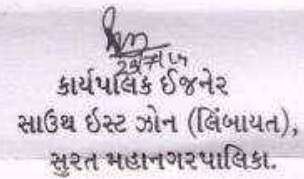 કાર્યપાલિક ઈજનેર
સાઉથ ઇસ્ટ ઝોન (લિંબાયત),
સુરત મહાનગરપાલિકા.